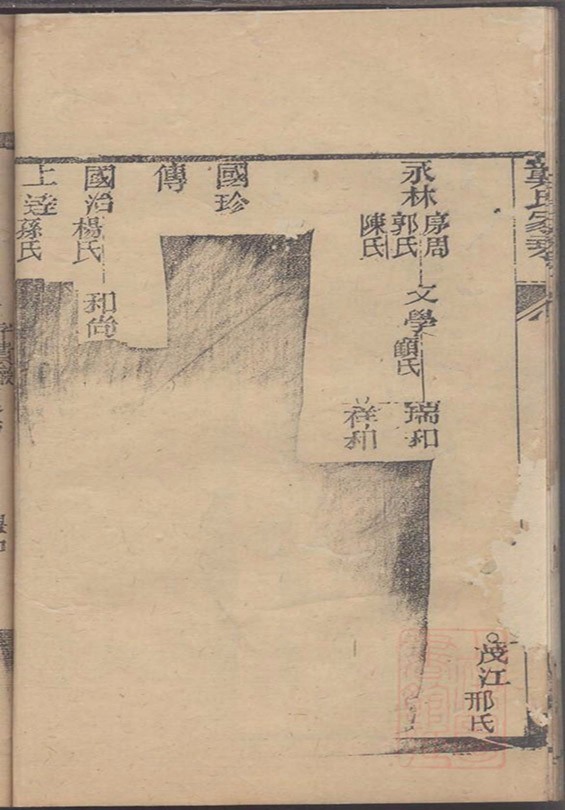 氏家
茂江
邢氏
永林
周
郭氏
陳氏
文學
顧氏
瑞和
祥和
國珍
傳
國治
楊氏
和尚
上達
孫氏